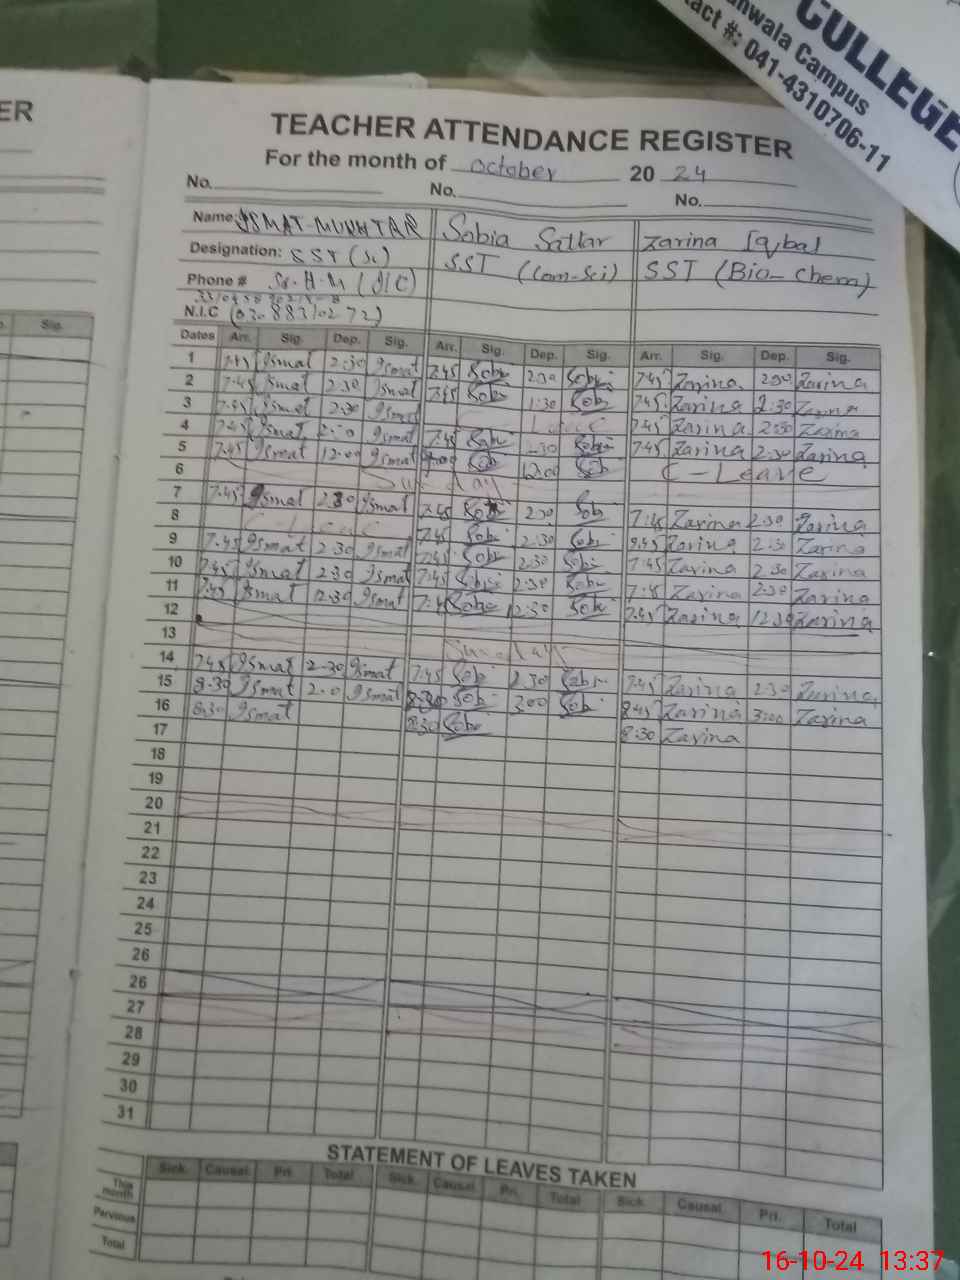 ER
CULLEGE
Campus
#: 041-4310706-11
TEACHER ATTENDANCE REGISTER
For the month of October 20 24
No. No. No.
Name: ISMAT-MUKHTAR Sobia Sattar Zarina Iqbal
Designation: SST (Sc) SST (Com-Sci) SST (Bio-Chem)
Phone # Sr. H.M (I/C)
N.I.C
Sig.
Dates Arr. Sig. Dep. Sig. Arr. Sig. Dep. Sig. Arr. Sig. Dep. Sig.
1 7:45 Ismat 2:30 Ismat 7:45 Sobi 2:30 Sobi 7:45 Zarina 2:30 Zarina
2 7:45 Ismat 2:30 Ismat 7:45 Sob 1:30 Sob 7:45 Zarina 2:30 Zarina
3 7:45 Ismat 2:30 Ismat Leave 7:45 Zarina 2:30 Zarina
4 7:45 Ismat Ismat 7:45 Sob Sobi 7:45 Zarina 2:30 Zarina
5 7:45 Ismat 12:00 Ismat Sob 12:00 Sob C-Leave
6 Sunday
7 7:45 Ismat 2:30 Ismat 7:45 Sob 2:30 Sob 7:45 Zarina 2:30 Zarina
8 C-Leave 7:45 Sob 2:30 Sob Zarina 2:30 Zarina
9 7:45 Ismat 2:30 Ismat 7:45 Sob 2:30 Sob 7:45 Zarina 2:30 Zarina
10 7:45 Ismat 2:30 Ismat 7:45 Sobi 2:30 Sob 7:45 Zarina 2:30 Zarina
11 7:45 Ismat 12:30 Ismat Sob 12:30 Sob 7:45 Zarina 12:30 Zarina
12
13 Sunday
14 7:45 Ismat 2:30 Ismat 7:45 Sob 2:30 Sobi 7:45 Zarina 2:30 Zarina
15 8:30 Ismat Ismat 8:30 Sob 3:00 Sob 8:45 Zarina 3:00 Zarina
16 8:30 Ismat 8:30 Sob 8:30 Zarina
17
18
19
20
21
22
23
24
25
26
26
27
28
29
30
31
STATEMENT OF LEAVES TAKEN
Sick. Causal Pri. Total Sick. Causal Pri. Total Sick. Causal Pri. Total
This month
Pervious
Total
16-10-24 13:37